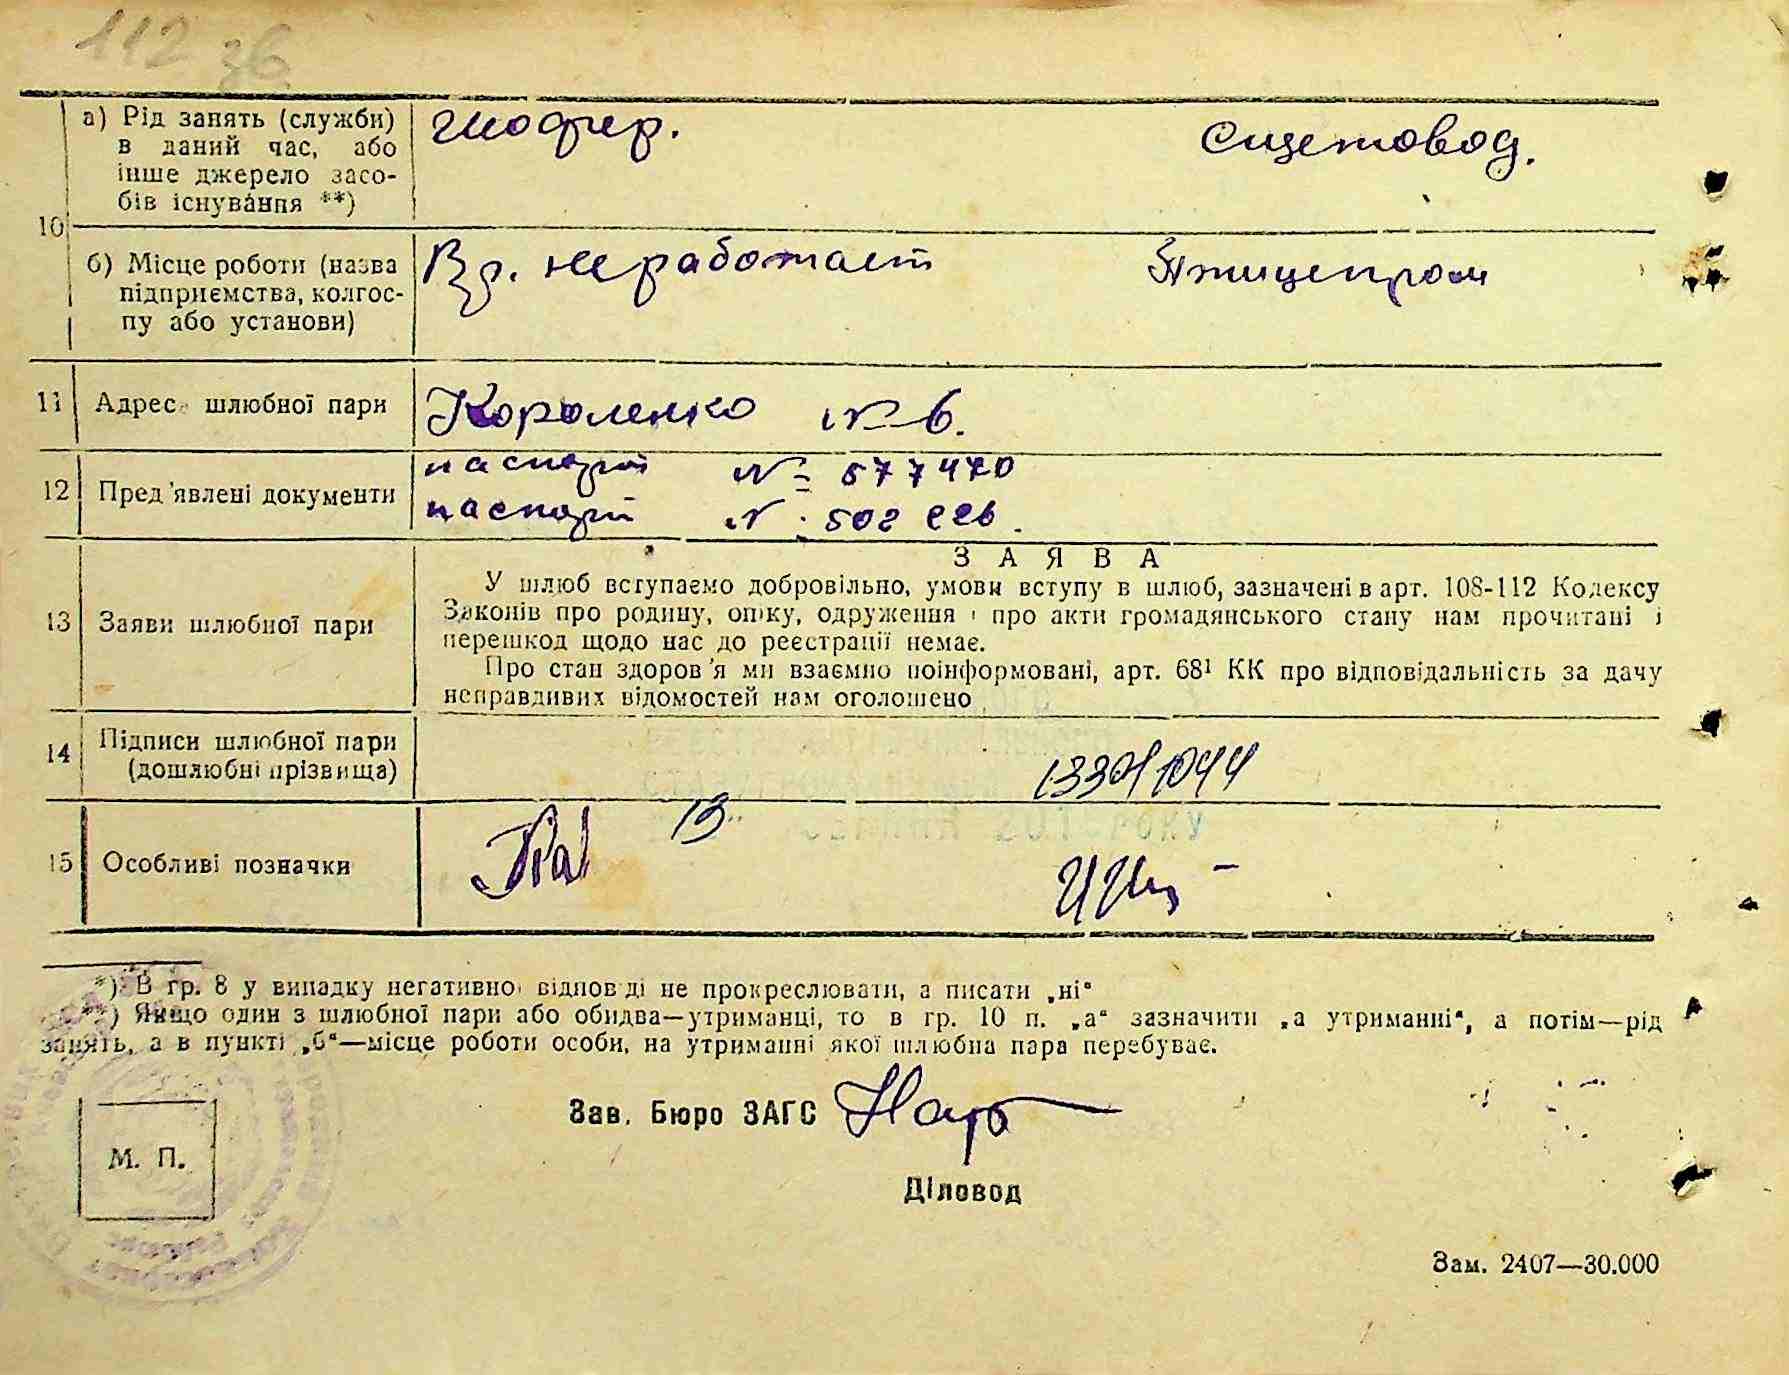 112 зб
10
а) Рід занять (служби) в даний час, або інше джерело засо-бів існування **)
шофер.
сщетовод.
б) Місце роботи (назва підприємства, колгос-пу або установи)
Вр. не работает
Птицепром
11 Адреса шлюбної пари
Короленко № 6.
12 Пред'явлені документи
паспорт № 577470
паспорт № 502 226.
13 Заяви шлюбної пари
ЗАЯВА
У шлюб вступаємо добровільно, умови вступу в шлюб, зазначені в арт. 108-112 Кодексу
Законів про родину, опіку, одруження і про акти громадянського стану нам прочитані і
перешкод щодо нас до реєстрації немає.
Про стан здоров'я ми взаємно поінформовані, арт. 68¹ КК про відповідальність за дачу
неправдивих відомостей нам оголошено
14 Підписи шлюбної пари
(дошлюбні прізвища)
15 Особливі позначки
*) В гр. 8 у випадку негативної відповіді не прокреслювати, а писати „ні“
**) Якщо один з шлюбної пари або обидва—утриманці, то в гр. 10 п. „а“ зазначити „а утриманні“, а потім—рід
занять, а в пункті „б“—місце роботи особи, на утриманні якої шлюбна пара перебуває.
Зав. Бюро ЗАГС
М. П.
Діловод
Зам. 2407—30.000